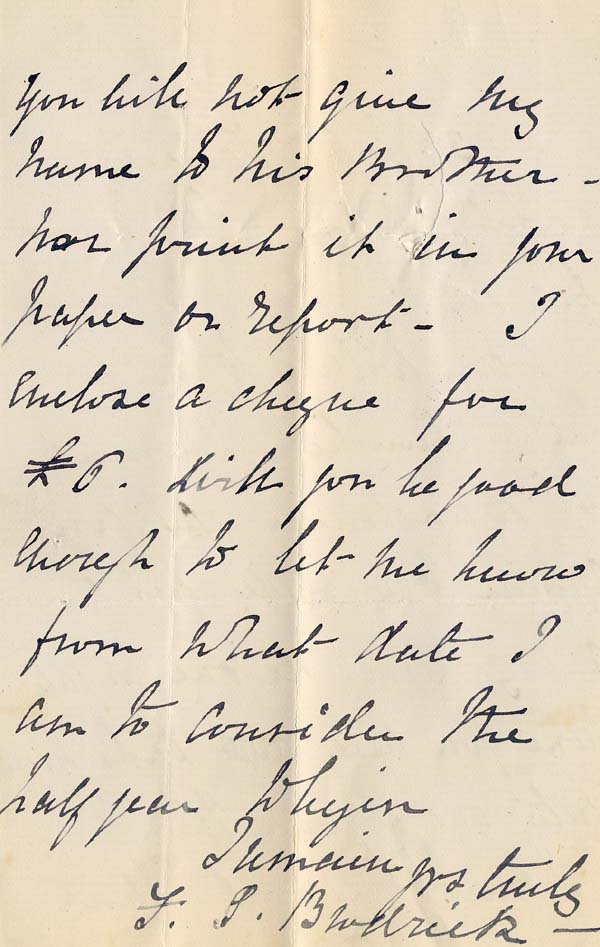 you will not give my
name to his Brother -
nor print it in your
paper or report - I
enclose a cheque for
£6. Will you be good
enough to let me know
from what date I
am to consider the
half year to begin
I remain yrs truly
F. S. Brodrick -